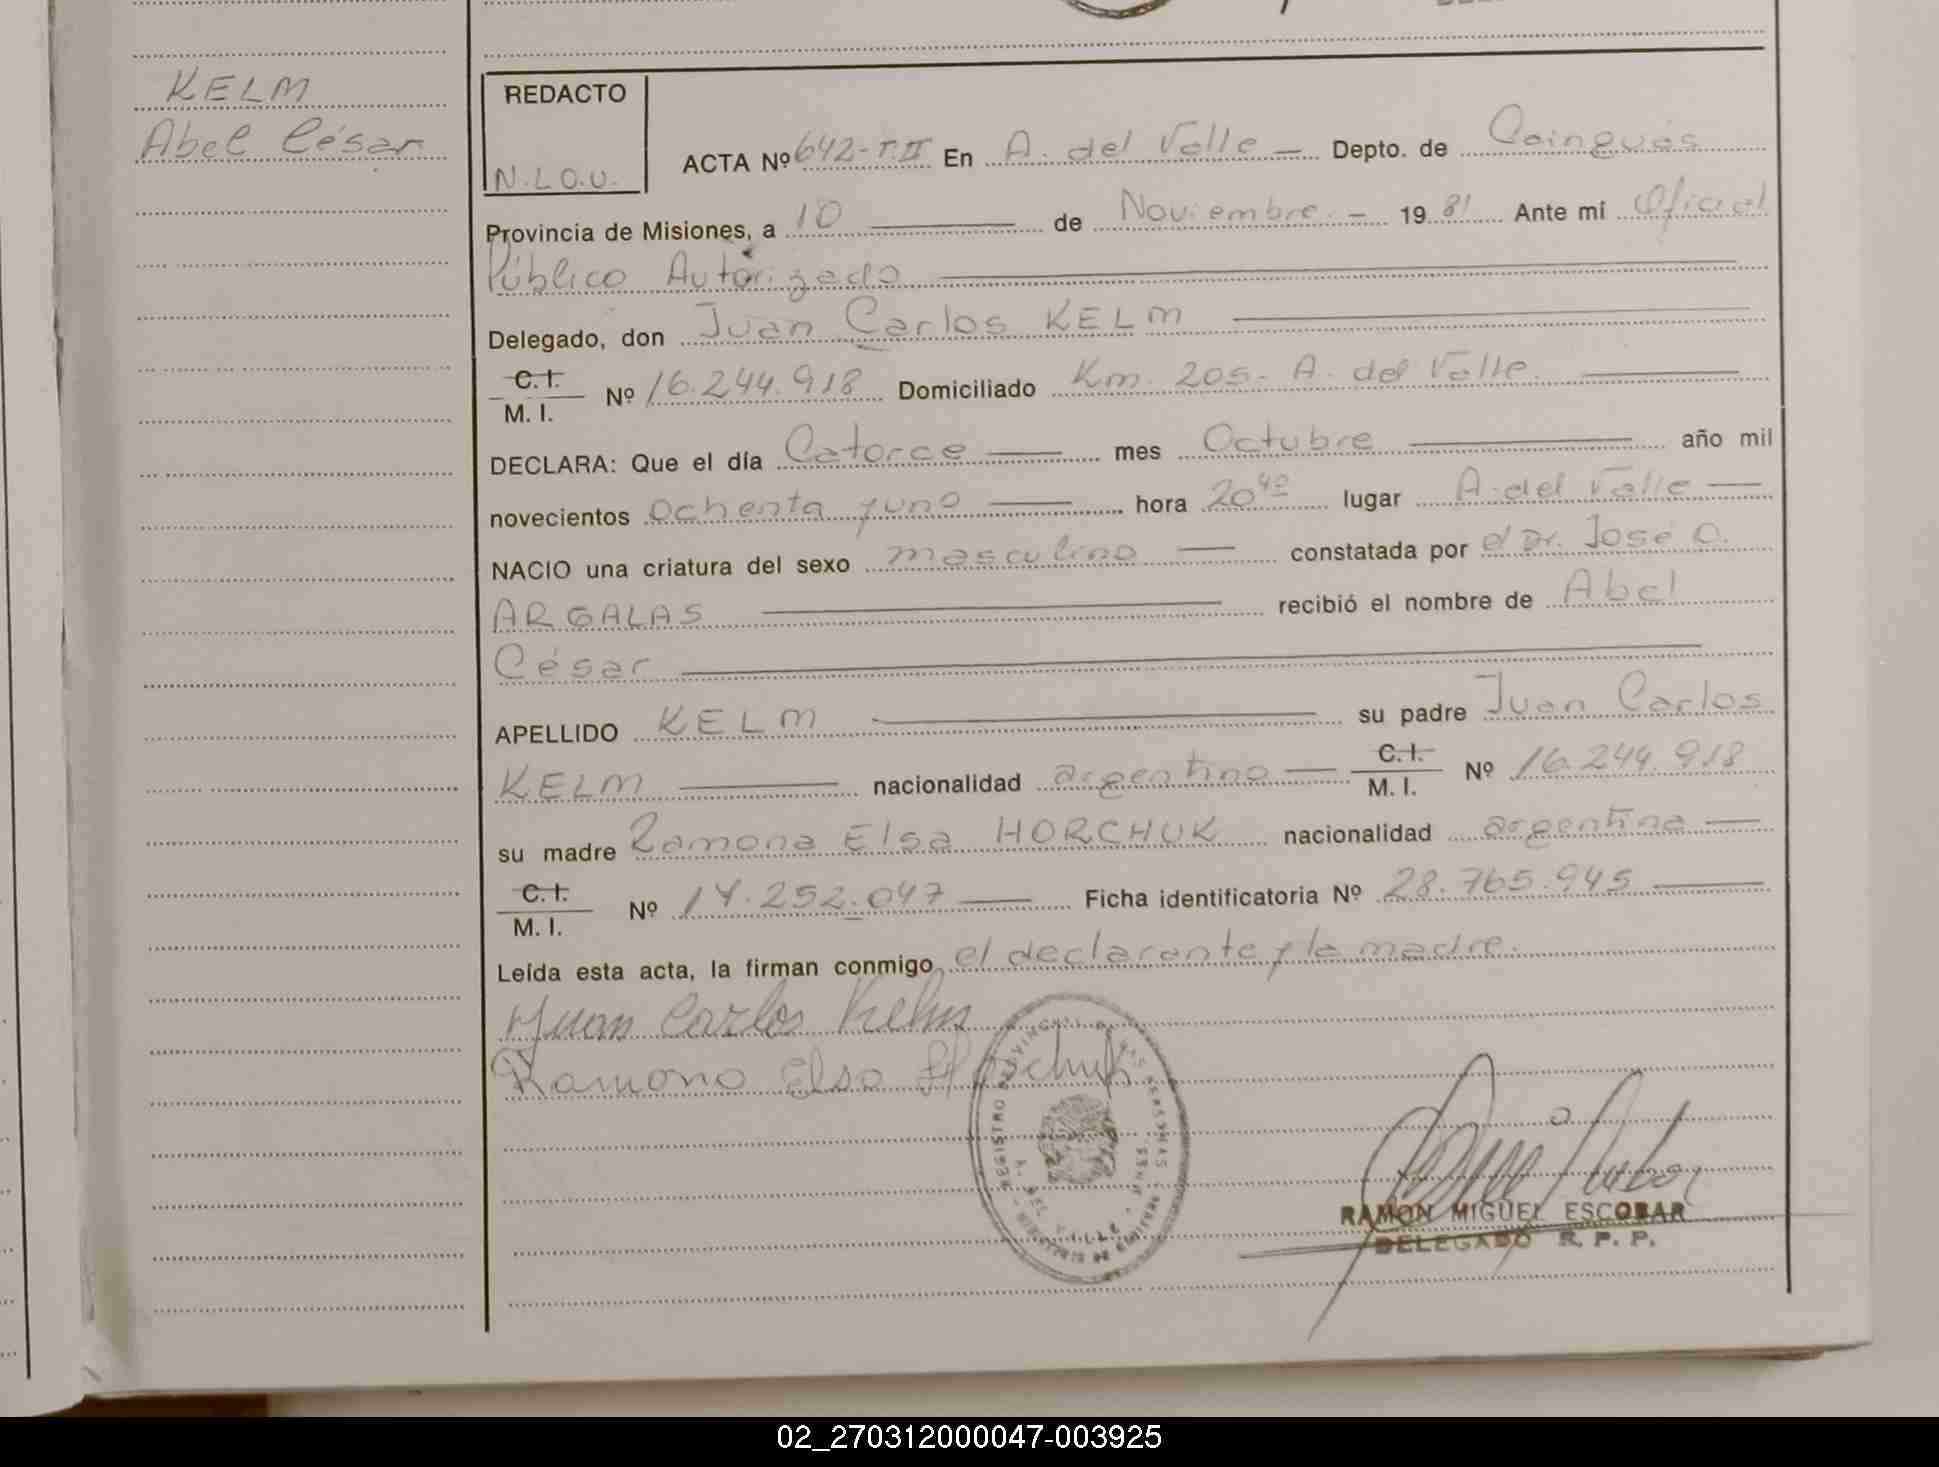 KELM
Abel César
REDACTO
N.L.O.U.
ACTA Nº 642-T.II En A. del Valle — Depto. de Cainguás
Provincia de Misiones, a 10 — de Noviembre. — 1981 Ante mí Oficial
Público Autorizado
Delegado, don Juan Carlos KELM
C. I.
M. I. Nº 16.244.918 Domiciliado Km. 205- A. del Valle.
DECLARA: Que el día Catorce — mes Octubre — año mil
novecientos ochenta y uno — hora 20⁴⁰ lugar A. del Valle —
NACIO una criatura del sexo masculino — constatada por el Dr. José O.
ARGALAS — recibió el nombre de Abel
César
APELLIDO KELM — su padre Juan Carlos
KELM — nacionalidad argentino — C. I. M. I. Nº 16.244.918
su madre Ramona Elsa HORCHUK nacionalidad argentina —
C. I.
M. I. Nº 17.252.047 — Ficha identificatoria Nº 28.765.945 —
Leída esta acta, la firman conmigo, el declarante y la madre.
Juan Carlos Kelm
Ramona Elsa Horschuk
REGISTRO PROVINCIAL DE LAS PERSONAS
A. DEL VALLE
RAMON MIGUEL ESCOBAR
DELEGADO R. P. P.
02_270312000047-003925